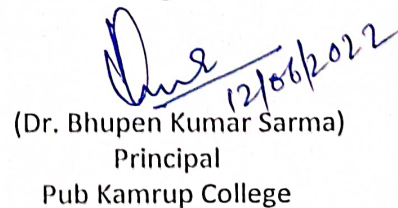 12/06/2022
(Dr. Bhupen Kumar Sarma)
Principal
Pub Kamrup College